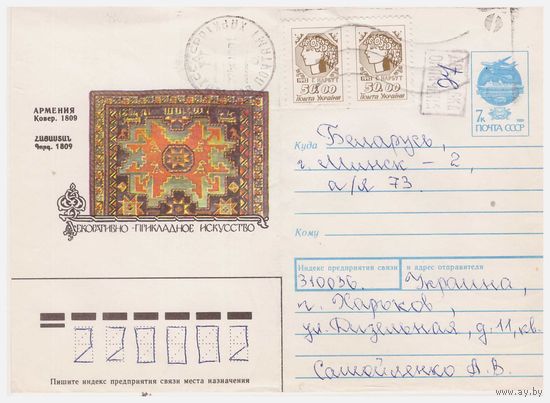 АРМЕНИЯ
Ковер. 1809
ՀԱՅԱՍՏԱՆ
Գորգ. 1809
ДЕКОРАТИВНО-ПРИКЛАДНОЕ ИСКУССТВО
50.00 50.00
1992 Г. НАРБУТ 1992 Г. НАРБУТ
Пошта України Пошта України
7к
ПОЧТА СССР
Куда Беларусь,
г. Минск – 2,
а/я 73.
Кому
Индекс предприятия связи и адрес отправителя
310036. Украина,
г. Харьков,
ул. Дизельная, д. 11, кв.
Самойленко А. В.
220002
Пишите индекс предприятия связи места назначения
www.ay.by